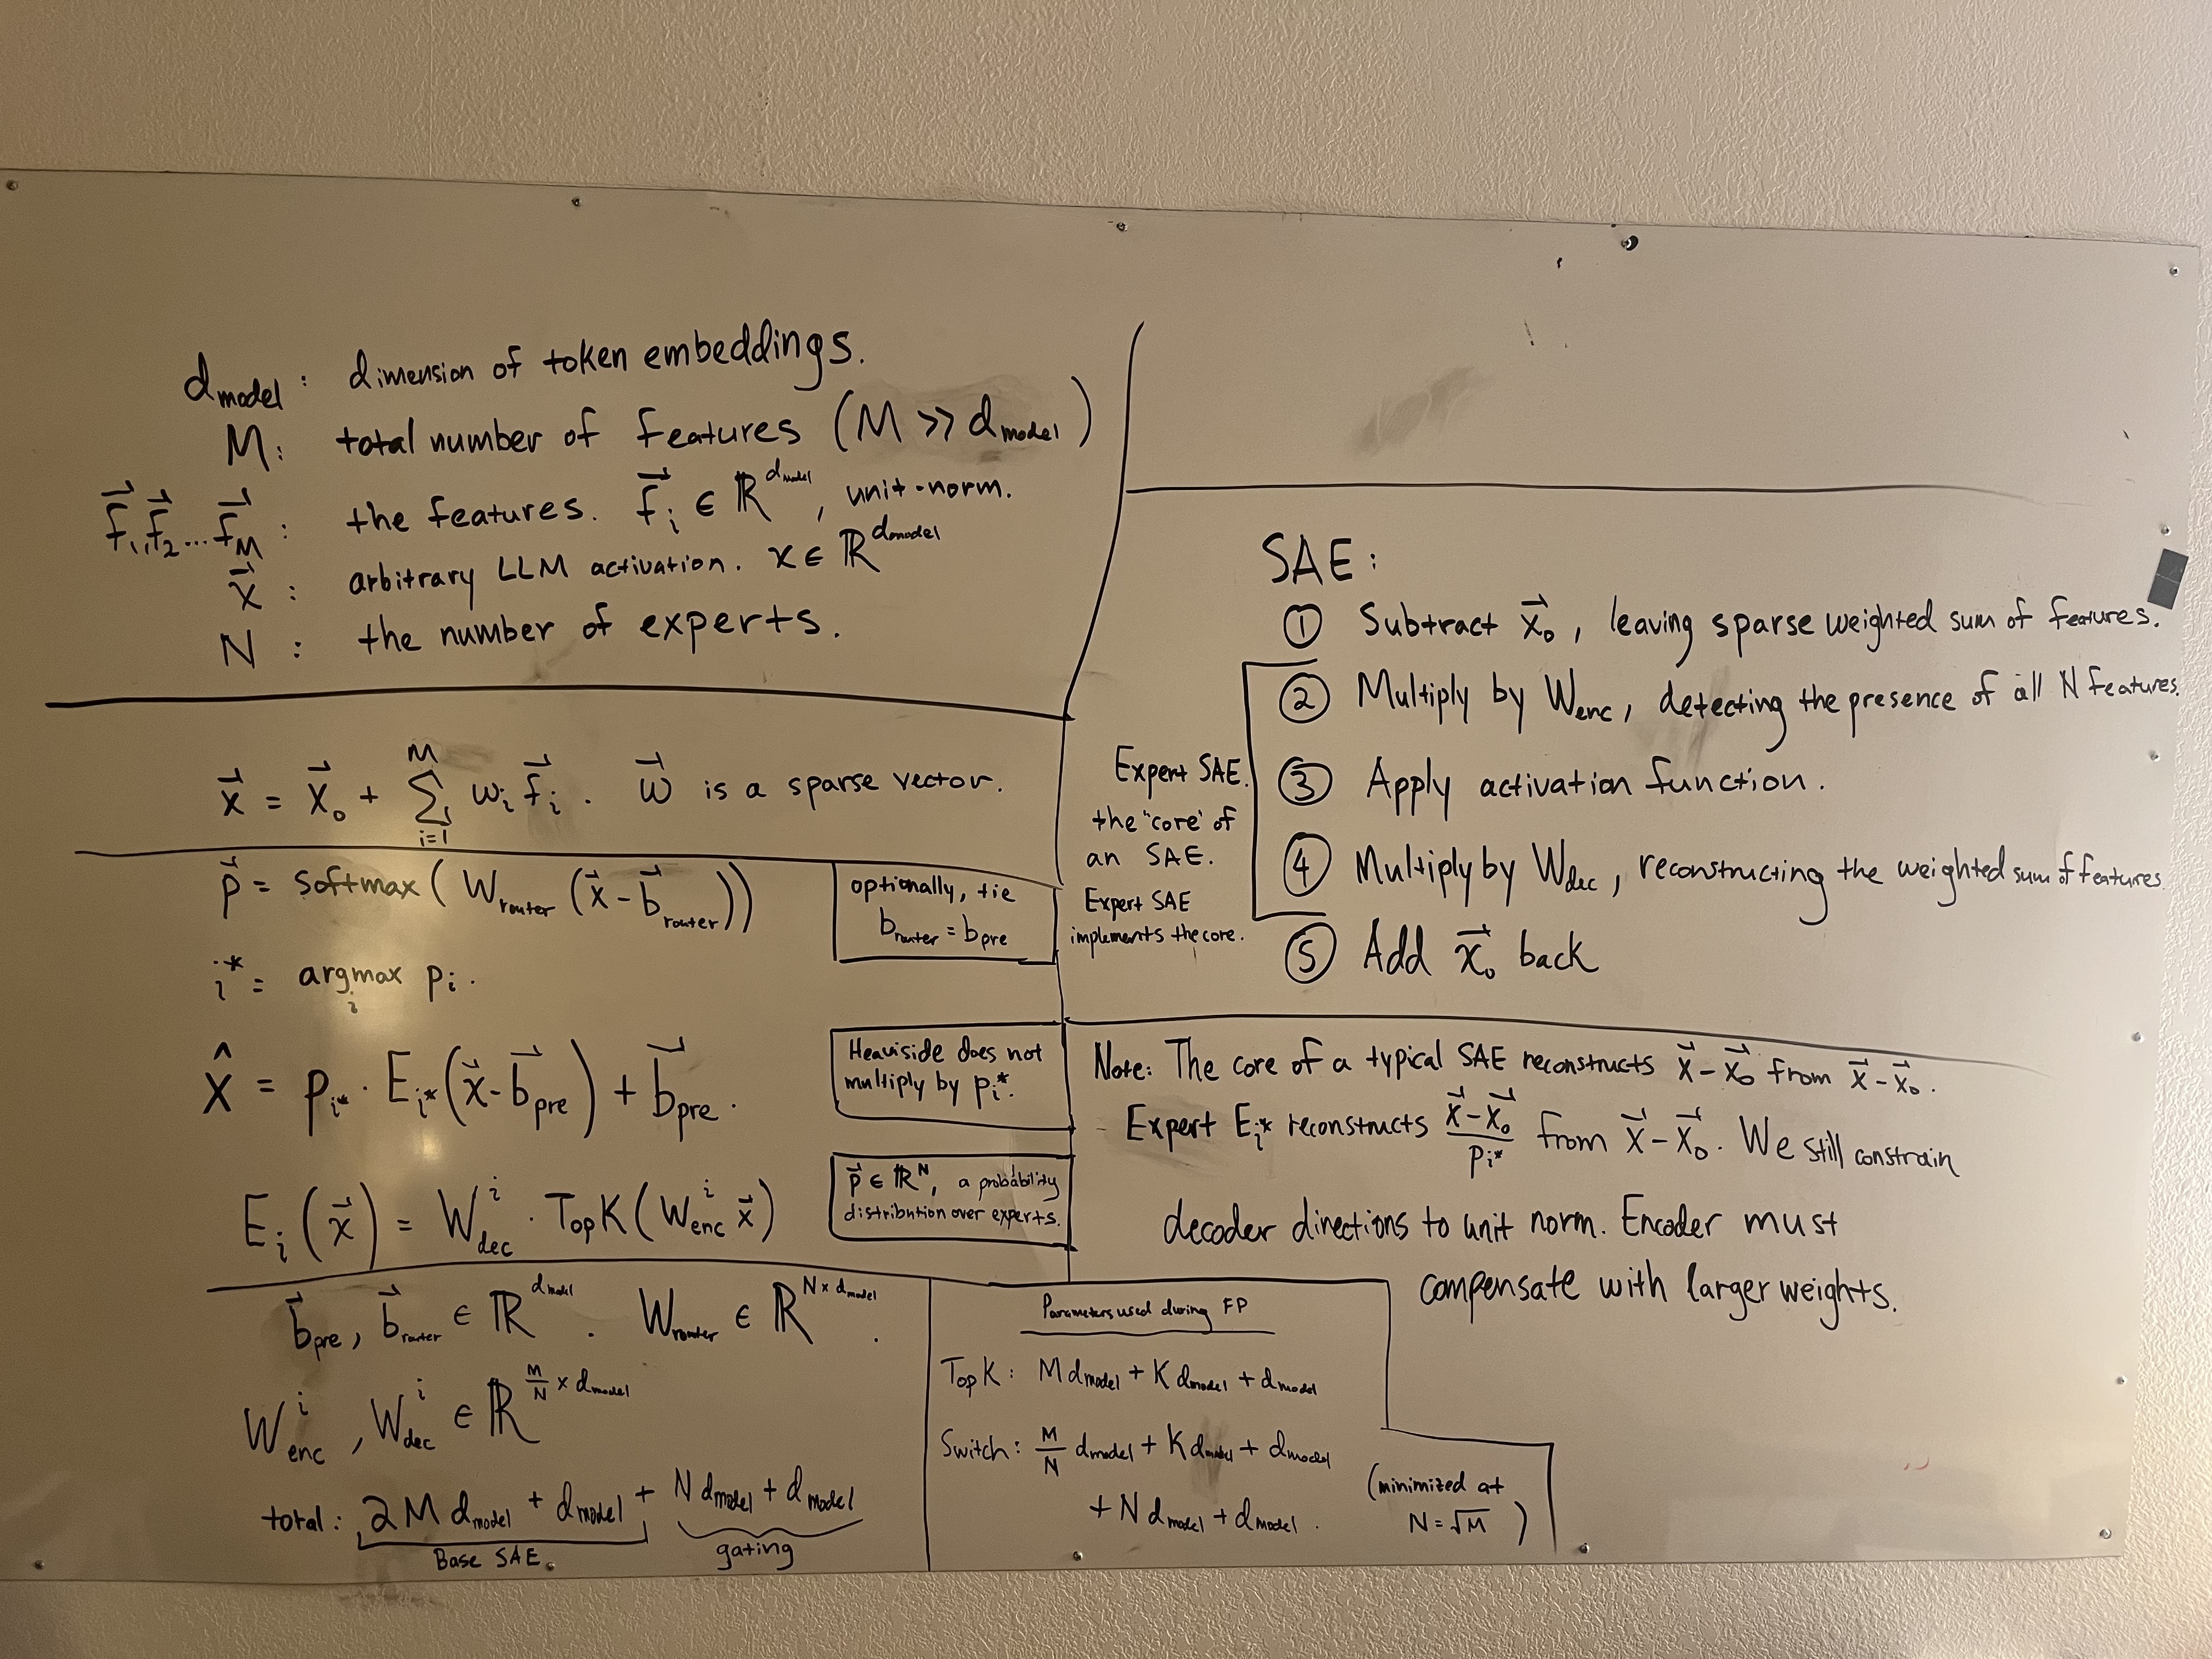 d_model : dimension of token embeddings.
M : total number of features (M >> d_model)
f⃗₁, f⃗₂ ... f⃗_M : the features. f⃗_i ∈ ℝ^{d_model}, unit-norm.
x⃗ : arbitrary LLM activation. x ∈ ℝ^{d_model}
N : the number of experts.
x⃗ = x⃗₀ + Σ_{i=1}^{M} w_i f⃗_i . w⃗ is a sparse vector.
p⃗ = softmax(W_router (x⃗ - b⃗_router))
optionally, tie
b_router = b_pre
i* = argmax_i p_i.
x̂ = p_{i*} · E_{i*}(x⃗ - b⃗_pre) + b⃗_pre.
Heaviside does not
multiply by p_{i*}.
E_i(x⃗) = W^i_dec · TopK(W^i_enc x⃗)
p⃗ ∈ ℝ^N, a probability
distribution over experts.
b⃗_pre, b⃗_router ∈ ℝ^{d_model}. W_router ∈ ℝ^{N × d_model}.
W^i_enc, W^i_dec ∈ ℝ^{M/N × d_model}
total: 2M d_model + d_model + N d_model + d_model
Base SAE.
gating
Parameters used during FP
TopK: M d_model + K d_model + d_model
Switch: M/N d_model + K d_model + d_model
+ N d_model + d_model.
(minimized at
N = √M)
SAE:
① Subtract x⃗₀, leaving sparse weighted sum of features.
② Multiply by W_enc, detecting the presence of all N features.
③ Apply activation function.
④ Multiply by W_dec, reconstructing the weighted sum of features
⑤ Add x⃗₀ back
Expert SAE.
the "core" of
an SAE.
Expert SAE
implements the core.
Note: The core of a typical SAE reconstructs x⃗ - x⃗₀ from x⃗ - x⃗₀.
Expert E_{i*} reconstructs (x⃗ - x⃗₀)/p_{i*} from x⃗ - x⃗₀. We still constrain
decoder directions to unit norm. Encoder must
compensate with larger weights.